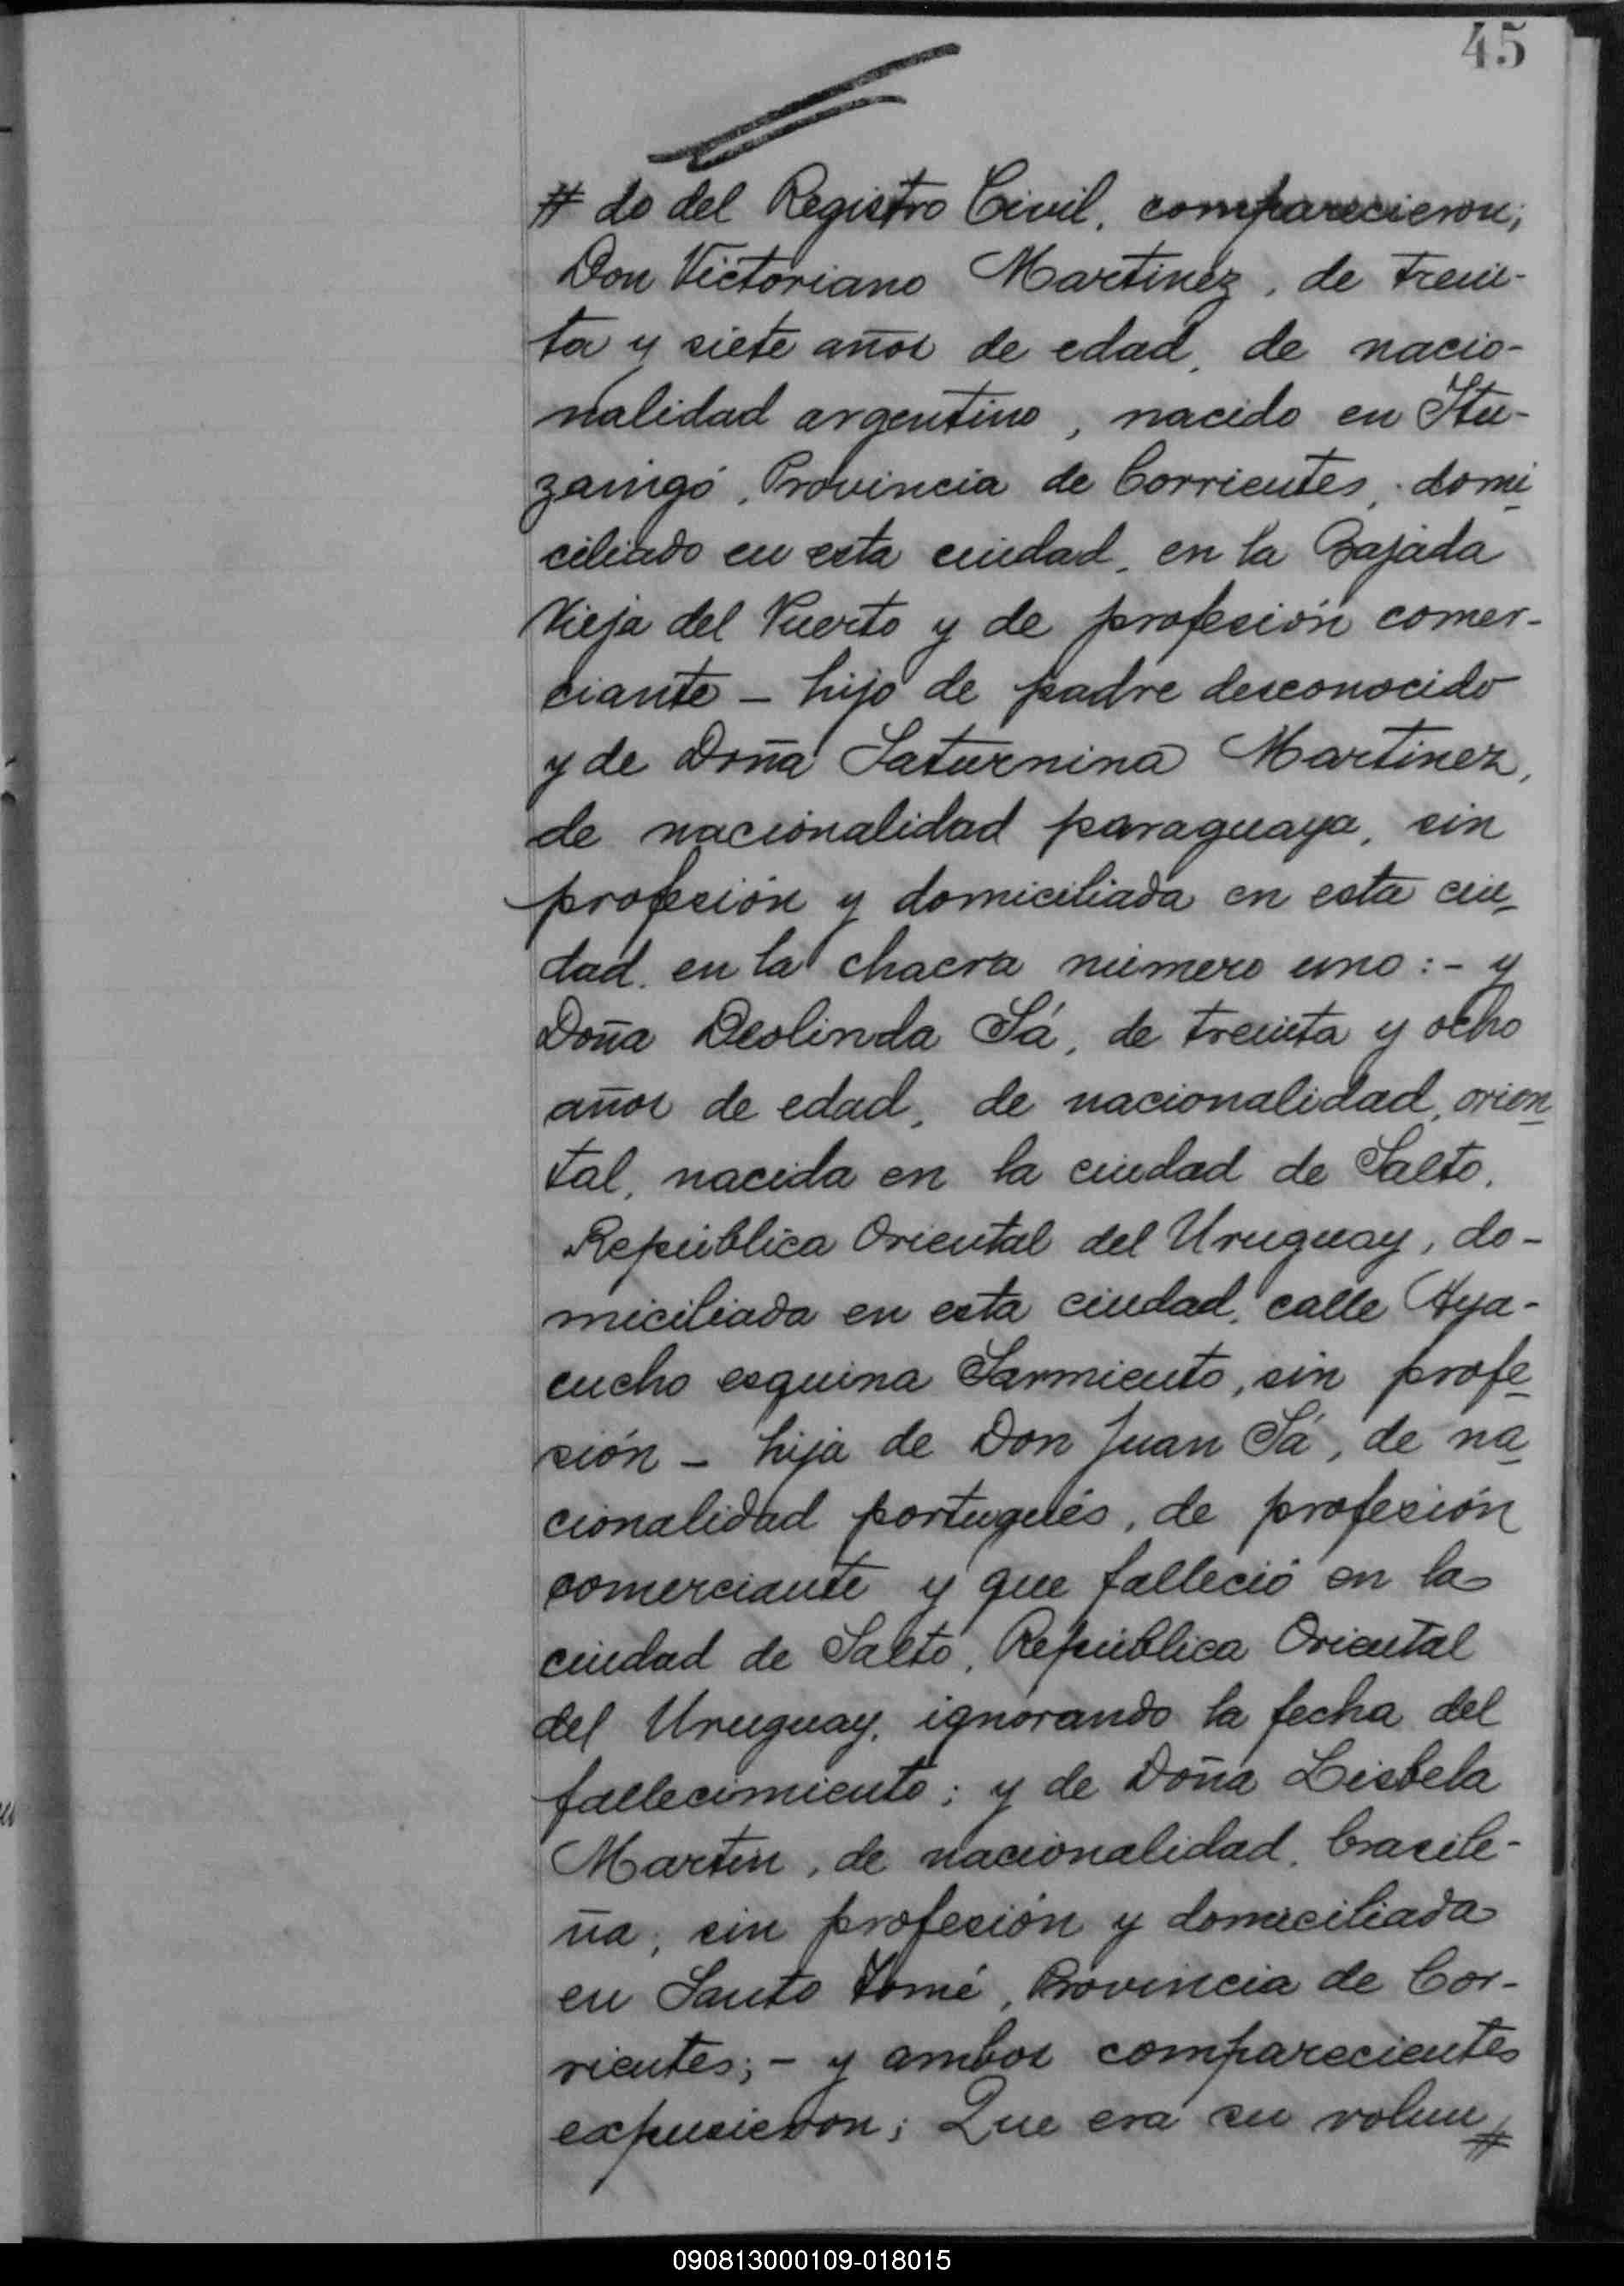 45
# do del Registro Civil, comparecieron;
Don Victoriano Martinez, de trein-
ta y siete años de edad, de nacio-
nalidad argentino, nacido en Itu-
zaingó, Provincia de Corrientes, domi
ciliado en esta ciudad, en la Bajada
Vieja del Puerto y de profesión comer-
ciante - hijo de padre desconocido
y de Doña Saturnina Martinez,
de nacionalidad paraguaya, sin
profesión y domiciliada en esta ciu-
dad, en la chacra número uno:- y
Doña Deolinda Sá, de treinta y ocho
años de edad, de nacionalidad, orien
tal, nacida en la ciudad de Salto,
República Oriental del Uruguay, do-
miciliada en esta ciudad, calle Aya-
cucho esquina Sarmiento, sin profe
sión - hija de Don Juan Sá, de na
cionalidad portugués, de profesión
comerciante y que falleció en la
ciudad de Salto, República Oriental
del Uruguay, ignorando la fecha del
fallecimiento; y de Doña Lisbela
Martin, de nacionalidad, brasile-
ña, sin profesión y domiciliada
en Santo Tomé, Provincia de Cor-
rientes;- y ambos comparecientes
expusieron; Que era su volun #
090813000109-018015